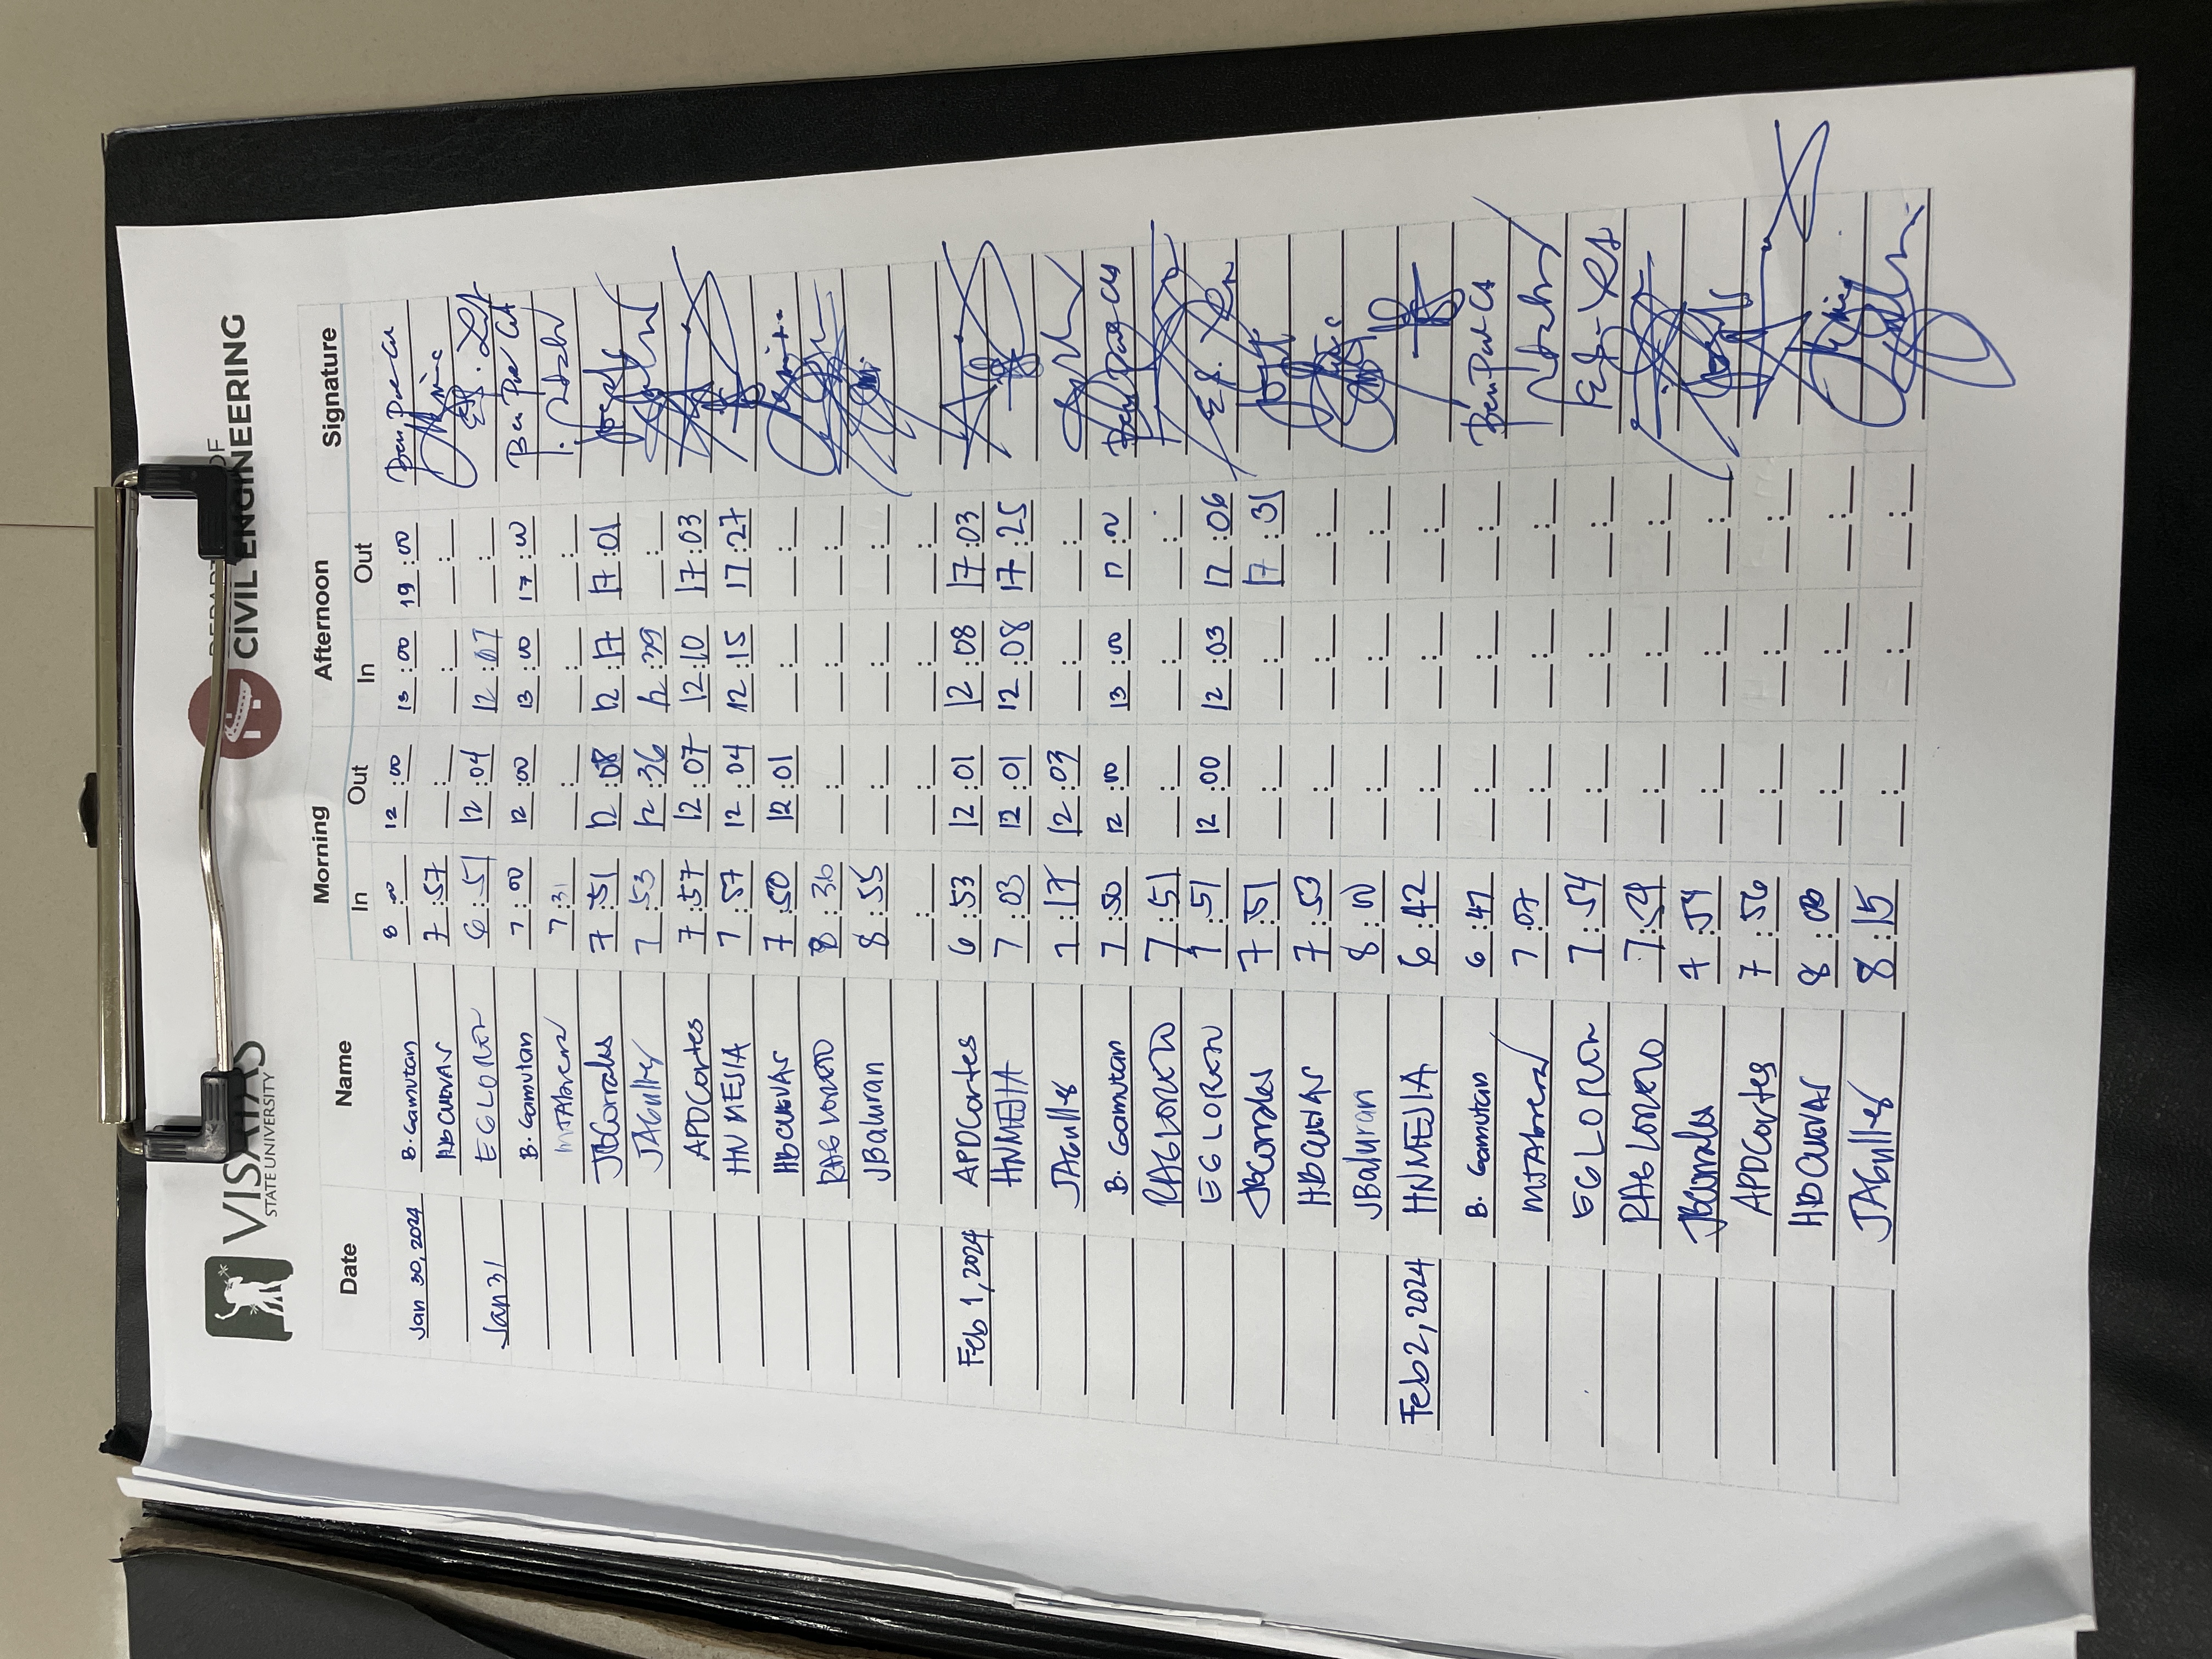 VISAYAS
STATE UNIVERSITY
DEPARTMENT OF
CIVIL ENGINEERING
Date Name Morning Afternoon Signature
In Out In Out
Jan 30, 2024 B. Gamutan 8:00 12:00 13:00 19:00
HBCUEVAS 7:57
Jan 31 EGLORETO 6:51 12:04 12:07
B. Gamutan 7:00 12:00 13:00 17:00
MJTAbrera 7:31
JBCorrales 7:51 12:08 12:17 17:01
JAGulles 7:53 12:36 12:39
APDCortes 7:57 12:07 12:10 17:03
HNMEJIA 7:57 12:04 12:15 17:27
HBCUEVAS 7:50 12:01
RAGLORETO 8:30
JBaluran 8:55
Feb 1, 2024 APDCortes 6:53 12:01 12:08 17:03
HNMEJIA 7:03 12:01 12:08 17:25
JAGulles 7:17 12:03
B. Gamutan 7:50 12:00 13:00 17:00
RAGLORETO 7:51
EGLORETO 7:51 12:00 12:03 17:06
JBCorrales 7:51 17:31
HBCUEVAS 7:53
JBaluran 8:00
Feb 2, 2024 HNMEJIA 6:42
B. Gamutan 6:47
MJTAbrera 7:07
EGLORETO 7:54
RAGLORETO 7:54
JBCorrales 7:54
APDCortes 7:56
HBCUEVAS 8:00
JAGulles 8:15